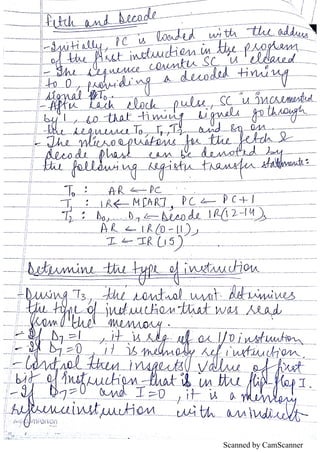 Fetch and Decode
- Initially, PC is loaded with the address
of the first instruction in the program
- The sequence counter SC is cleared
to 0, providing a decoded timing
signal T0.
- After each clock pulse, SC is incremented
by 1, so that timing signals go through
the sequence T0, T1, T2, and so on
- The microoperations for the fetch &
decode phase can be denoted by
the following register transfer statements:
T0 : AR ← PC
T1 : IR ← M[AR], PC ← PC+1
T2 : D0, .. D7 ← Decode IR(12-14),
AR ← IR(0-11),
I ← IR(15)
Determine the type of instruction
- During T3, the control unit determines
the type of instruction that was read
from the memory.
- If D7=1, it is reg ref or I/O instruction
- If D7=0, it is memory ref instruction.
- Control then inspects value of first
bit of instruction that is in the flip flop I.
- If D7=0 and I=0, it is a memory
reference instruction with an indirect
Scanned by CamScanner